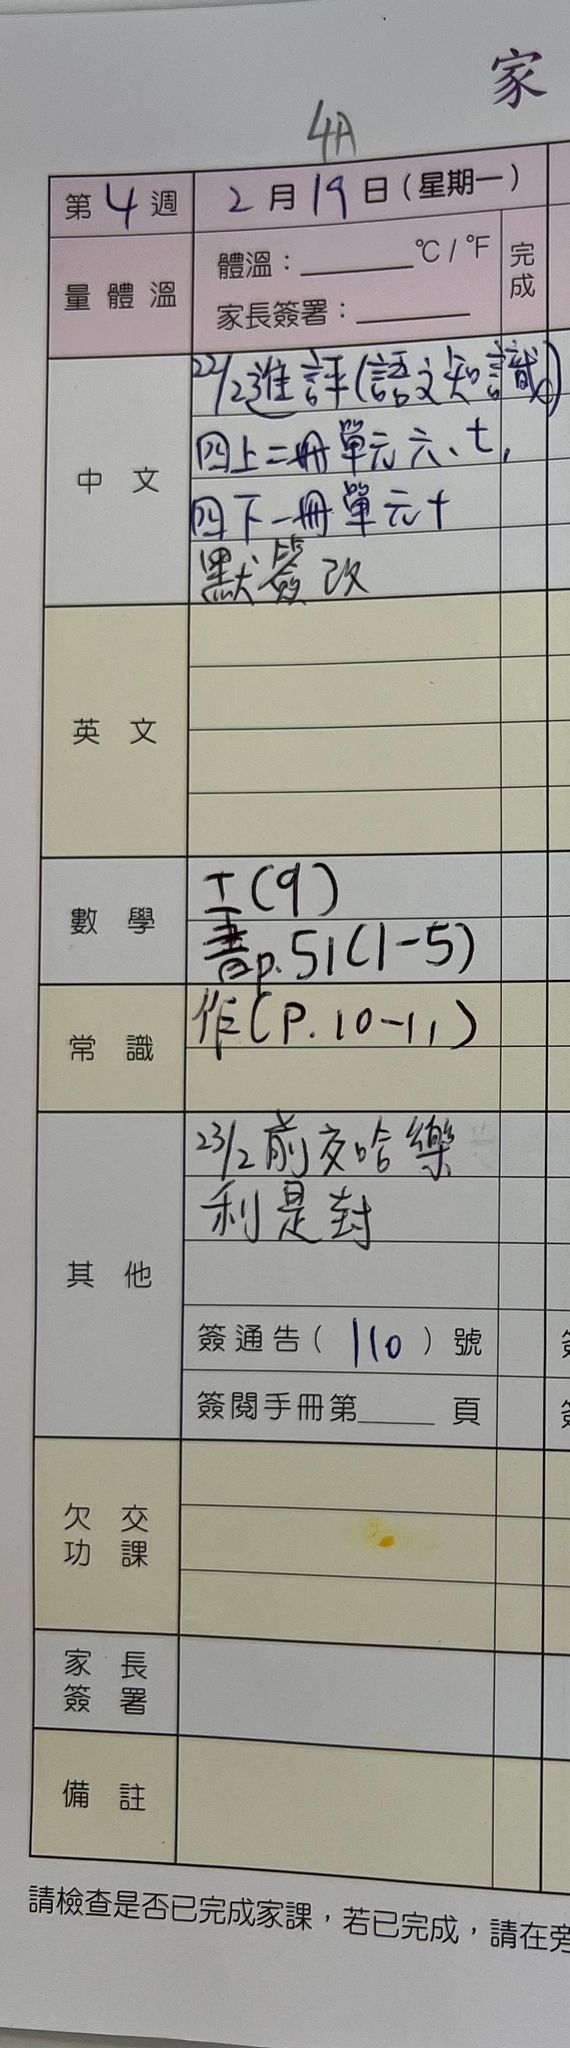 家
4A
第 4 週
2 月 19 日 (星期一)
量體溫
體溫：______ °C / °F
家長簽署：______
完成
中文
22/2進評(語文知識)
四上二冊單元六、七,
四下一冊單元十
默簽改
英文
數學
工(9)
書p.51(1-5)
常識
作(P.10-11)
其他
23/2前交哈樂
利是封
簽通告( 110 )號
簽閱手冊第____頁
欠交功課
家長簽署
備註
請檢查是否已完成家課，若已完成，請在旁